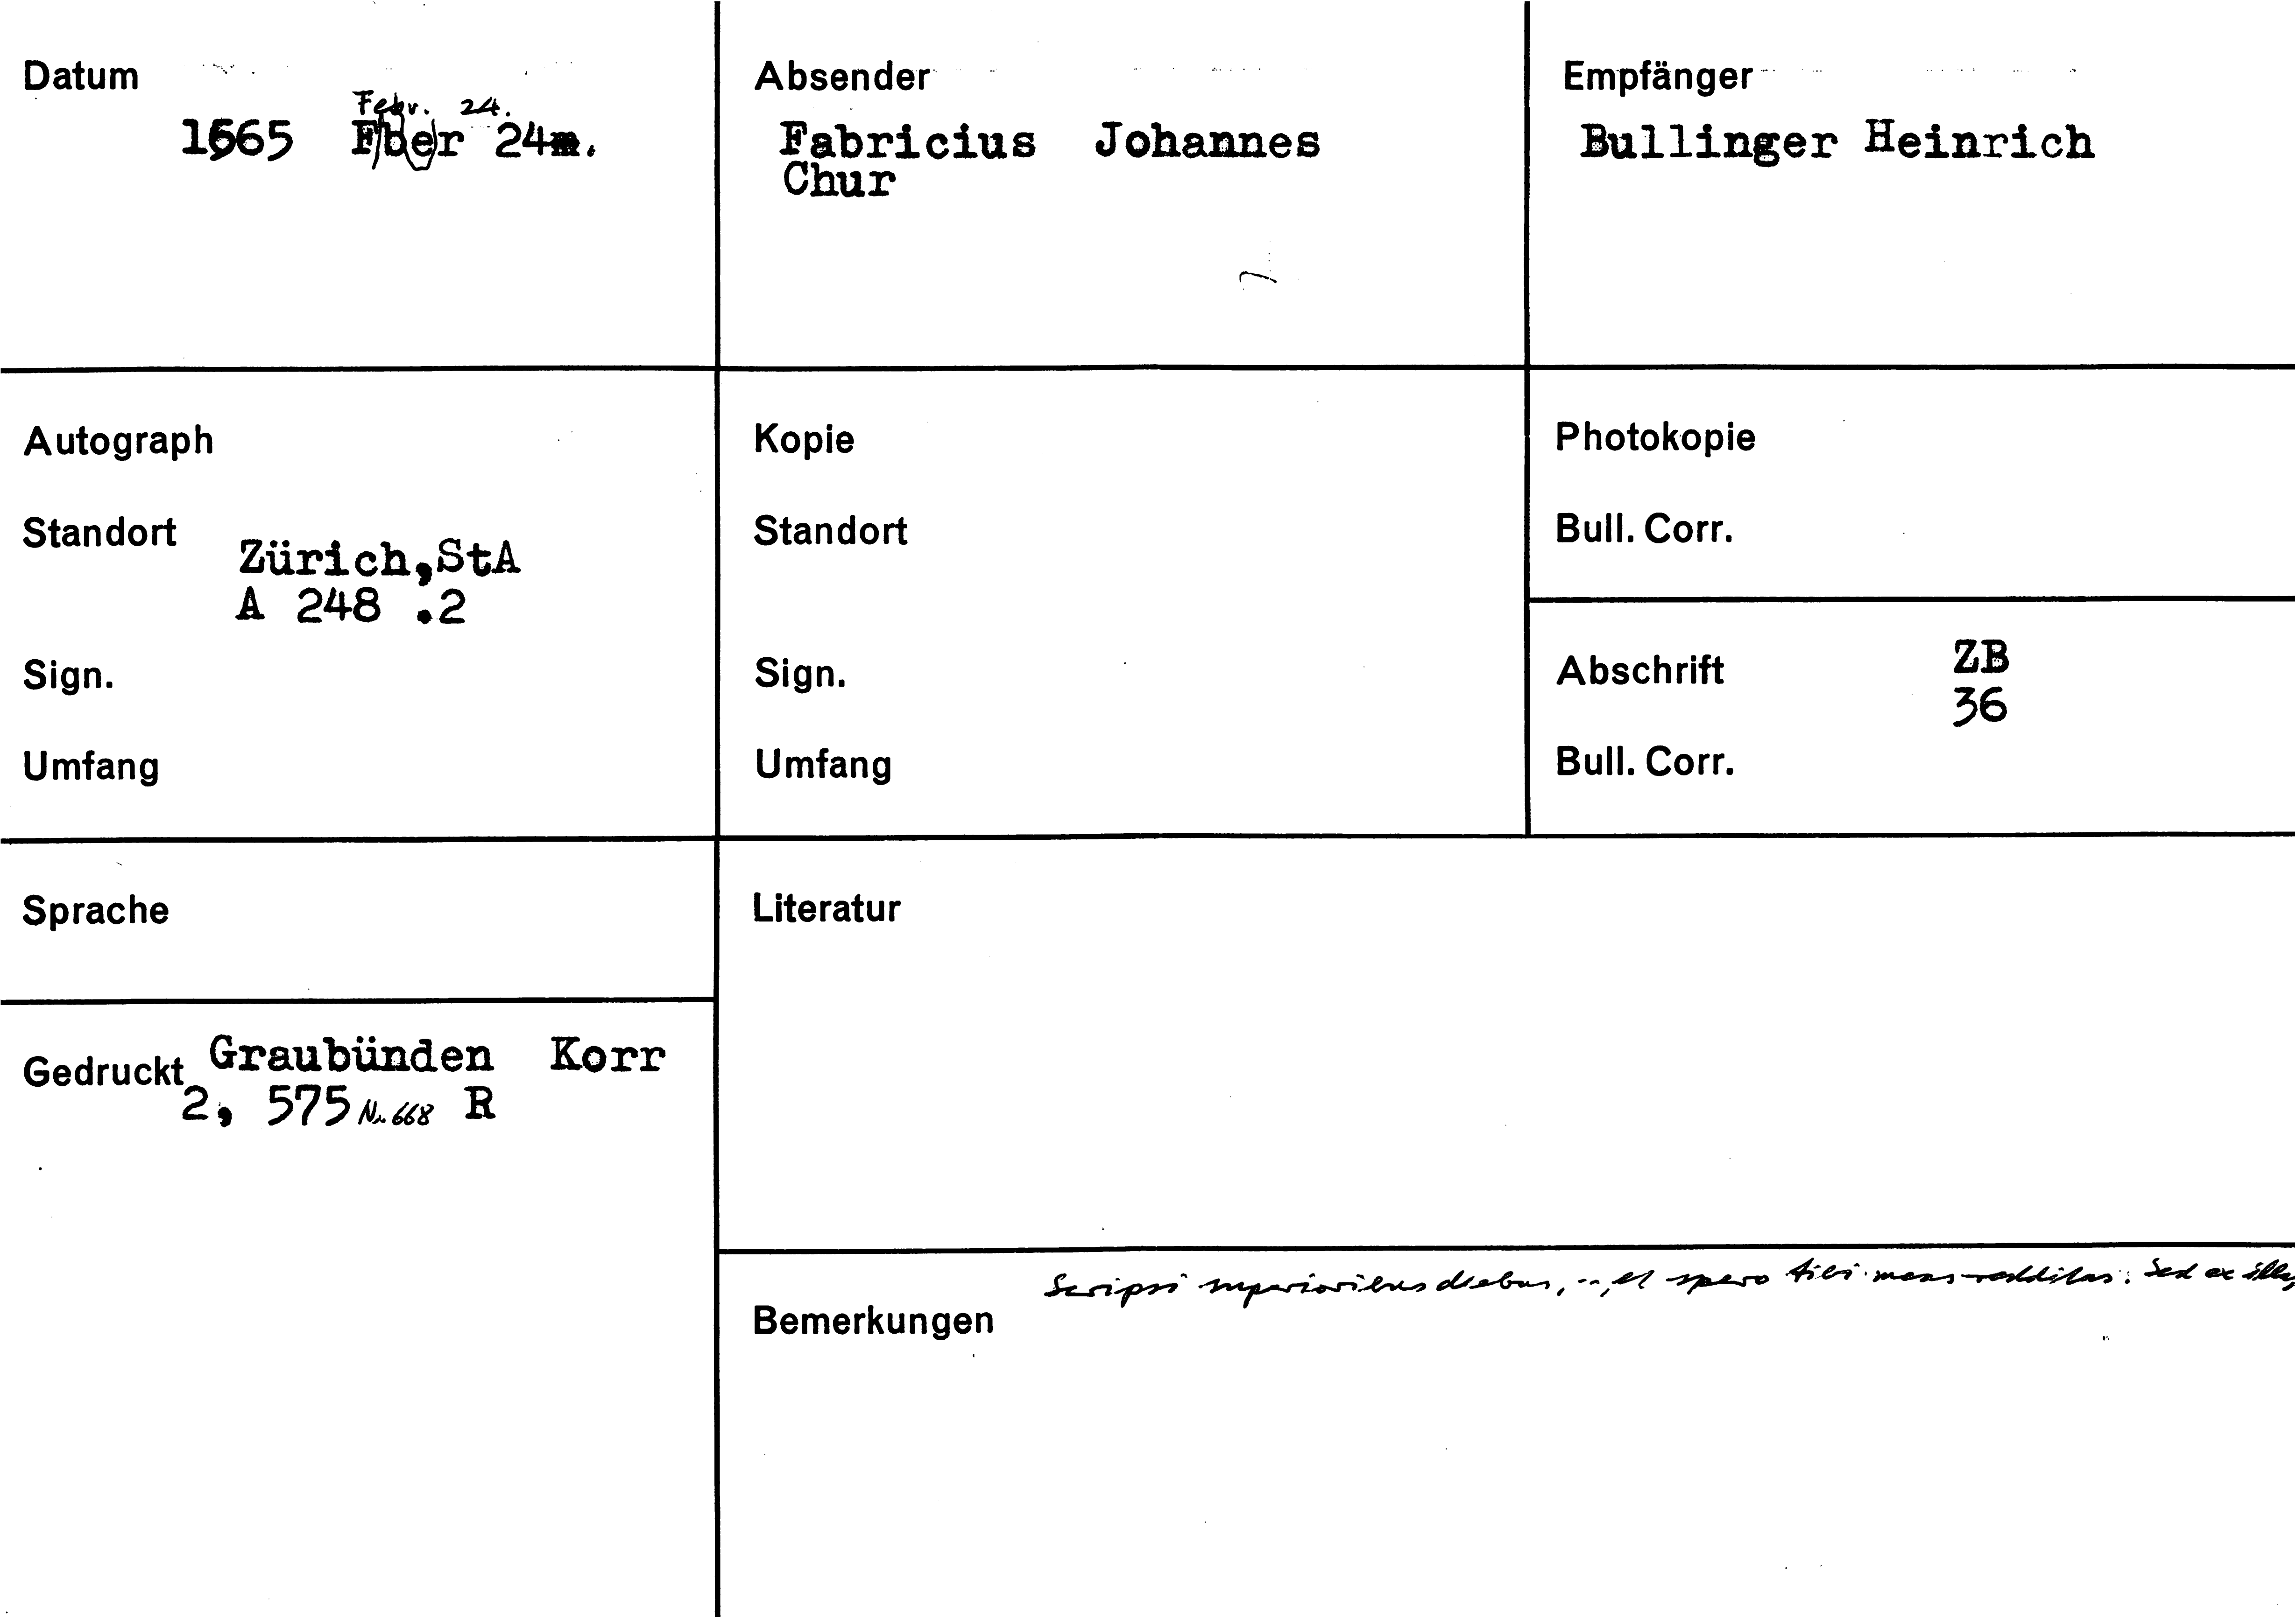 Datum
Febr. 24.
1565 Fber 24.
Absender
Fabricius Johannes
Chur
Empfänger
Bullinger Heinrich
Autograph
Standort
Zürich,StA
A 248 .2
Sign.
Umfang
Kopie
Standort
Sign.
Umfang
Photokopie
Bull. Corr.
Abschrift ZB
36
Bull. Corr.
Sprache
Gedruckt Graubünden Korr
2, 575 Nr. 668 R
Literatur
Scripsi superioribus diebus, .., et spero tibi meas redditas. Sed ex illis
Bemerkungen